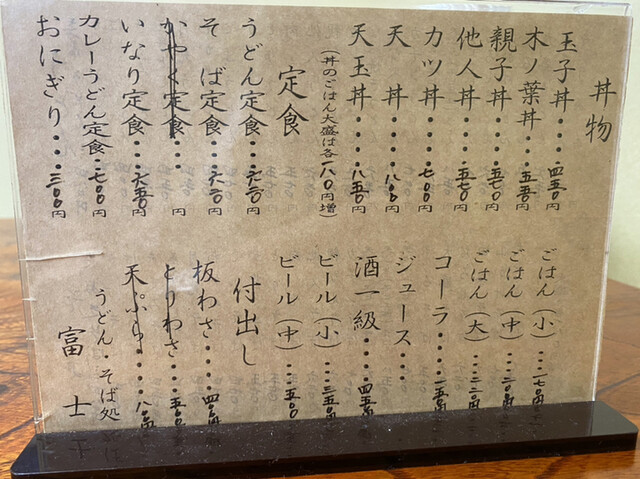 丼物
玉子丼・・・四五〇円
木ノ葉丼・・五五〇円
親子丼・・・五七〇円
他人丼・・・五七〇円
カツ丼・・・七〇〇円
天丼・・・八〇〇円
天玉丼・・・八五〇円
(丼のごはん大盛は各一八〇円増)
定食
うどん定食・・六五〇円
そば定食・・六五〇円
かやく定食・・ 円
いなり定食・・六五〇円
カレーうどん定食・・七〇〇円
おにぎり・・・三〇〇円
ごはん(小)・・・一七〇円
ごはん(中)・・・二〇〇円
ごはん(大)・・・
コーラ・・・・・二五〇円
ジュース・・・
酒一級・・・・四五〇
ビール(小)・・・三五〇
ビール(中)・・・五〇〇
付出し
板わさ・・・・四〇〇
とりわさ・・・五〇〇
天ぷら・・・・八〇〇
うどん・そば処
富士